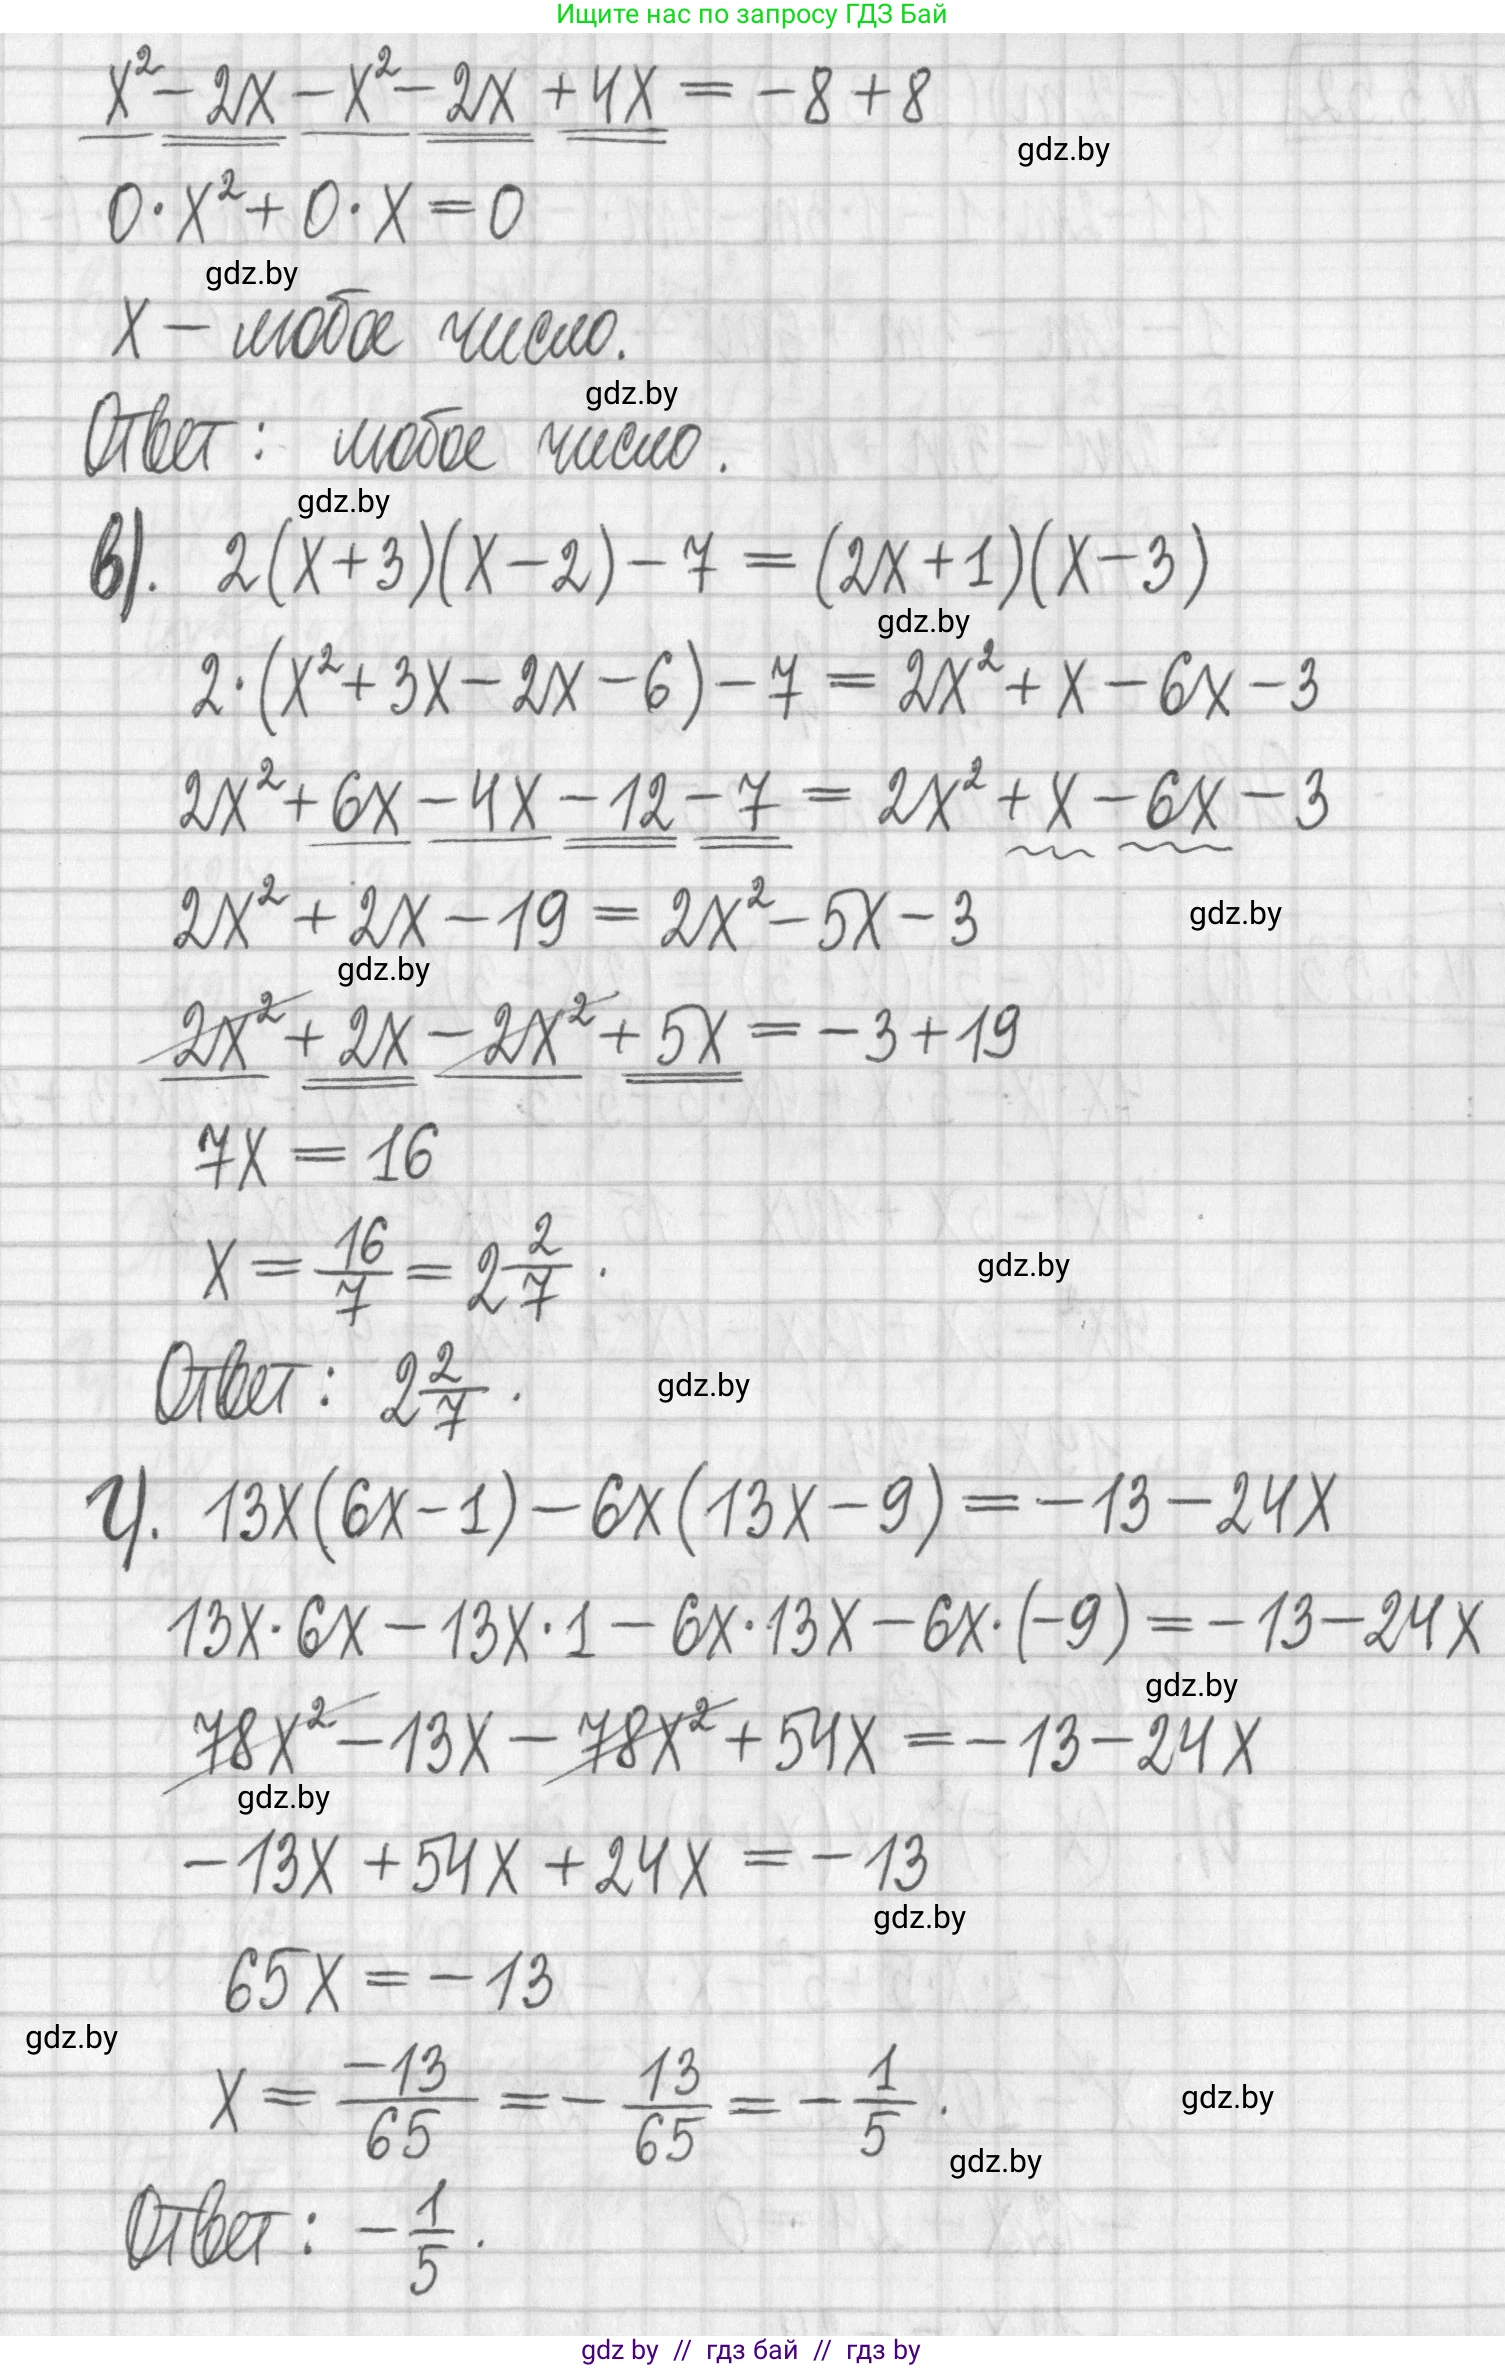 Ищите нас по запросу ГДЗ Бай
x² - 2x - x² - 2x + 4x = -8 + 8
gdz.by
0·x² + 0·x = 0
gdz.by
x - любое число.
gdz.by
Ответ: любое число.
gdz.by
в). 2(x+3)(x-2) - 7 = (2x+1)(x-3)
gdz.by
2·(x² + 3x - 2x - 6) - 7 = 2x² + x - 6x - 3
2x² + 6x - 4x - 12 - 7 = 2x² + x - 6x - 3
2x² + 2x - 19 = 2x² - 5x - 3
gdz.by
gdz.by
2x² + 2x - 2x² + 5x = -3 + 19
7x = 16
x = 16/7 = 2 2/7.
gdz.by
Ответ: 2 2/7.
gdz.by
г). 13x(6x-1) - 6x(13x-9) = -13 - 24x
13x·6x - 13x·1 - 6x·13x - 6x·(-9) = -13 - 24x
gdz.by
78x² - 13x - 78x² + 54x = -13 - 24x
gdz.by
-13x + 54x + 24x = -13
gdz.by
65x = -13
gdz.by
x = -13/65 = -13/65 = -1/5.
gdz.by
gdz.by
Ответ: -1/5.
gdz by // гдз бай // гдз by